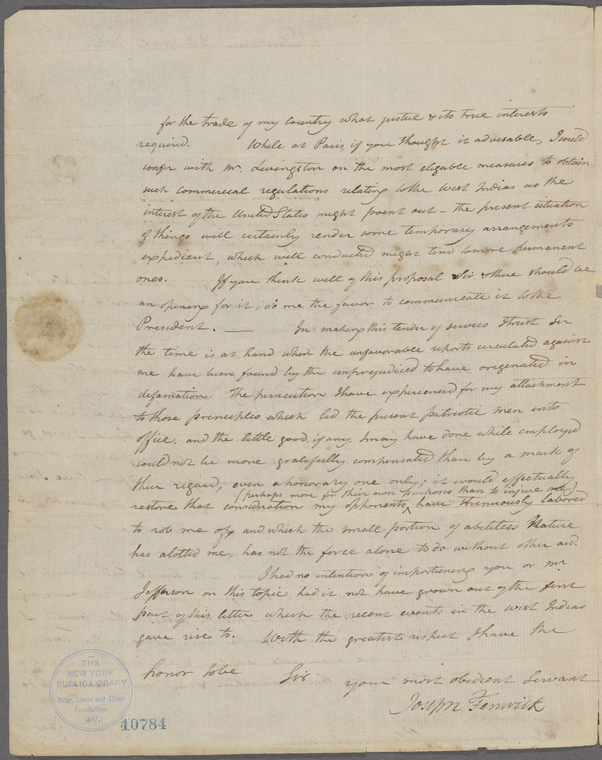 for the trade of my Country what justice & its true interests
required. While at Paris, if you thought it adviseable, I would
confer with Mr. Livingston on the most eligable measures to obtain
such commercial regulations relating to the West Indias as the
interest of the United States might point out - the present situation
of things will certainly render some temporary arrangements
expedient, which well conducted might tend to more permanent
ones. If you think well of this proposal Sir & there should be
an opening for it, do me the favor to communicate it to the
President. — In making this tender of services I trust Sir
the time is at hand when the unfavorable reports circulated against
me have been found by the unprejudiced to have originated in
defamation. The persecution I have experienced for my attachment
to those principles which led the present patriotic men into
office, and the little good, if any, I may have done while employed
could not be more gratefully compensated than by a mark of
their regard; even a honorary one only; it would effectually
(perhaps more for their own purposes than to injure me)
restore that consideration my opponents ^ have strenuously labored
to rob me of, and which the small portion of abilities Nature
has alotted me, has not the force alone to do without other aid.
I had no intention of importuning you or Mr
Jefferson on this topic had it not have grown out of the first
part of this letter which the recent events in the West Indias
gave rise to. With the greatest respect I have the
honor to be Sir your most obedient Servant
Joseph Fenwick
THE
NEW YORK
PUBLIC LIBRARY
Astor, Lenox and Tilden
Foundations.
10784